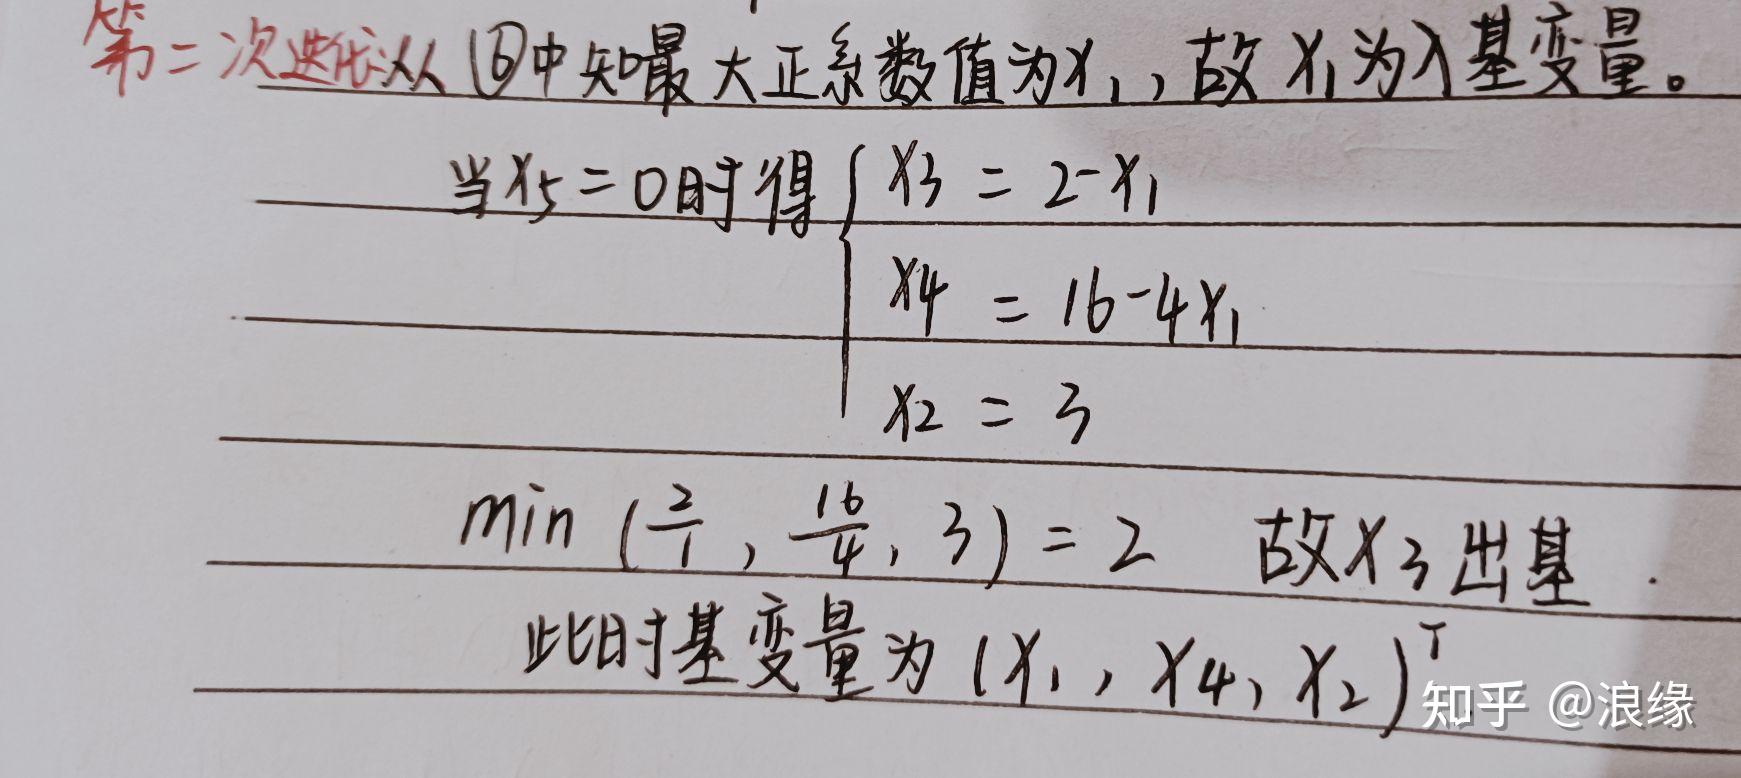 第二次迭代从⑥中知最大正系数值为x₁,故x₁为入基变量。
当x₅=0时得{x₃=2-x₁
x₄=16-4x₁
x₂=3
min(2/1,16/4,3)=2 故x₃出基.
此时基变量为(x₁,x₄,x₂)ᵀ
知乎 @浪缘